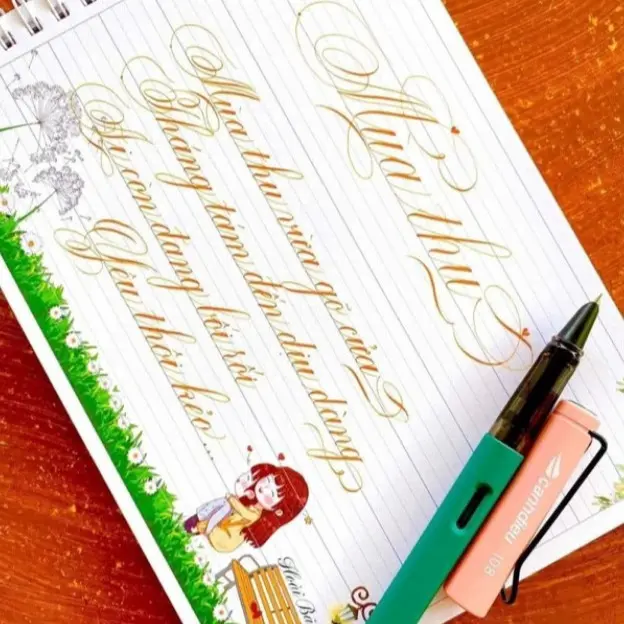 Mùa thu
Mùa thu vừa gõ cửa
Tháng tám đến dịu dàng
Ai còn đang bối rối
Yêu thôi kẻo...
Hoài Bã
canhdieu
108